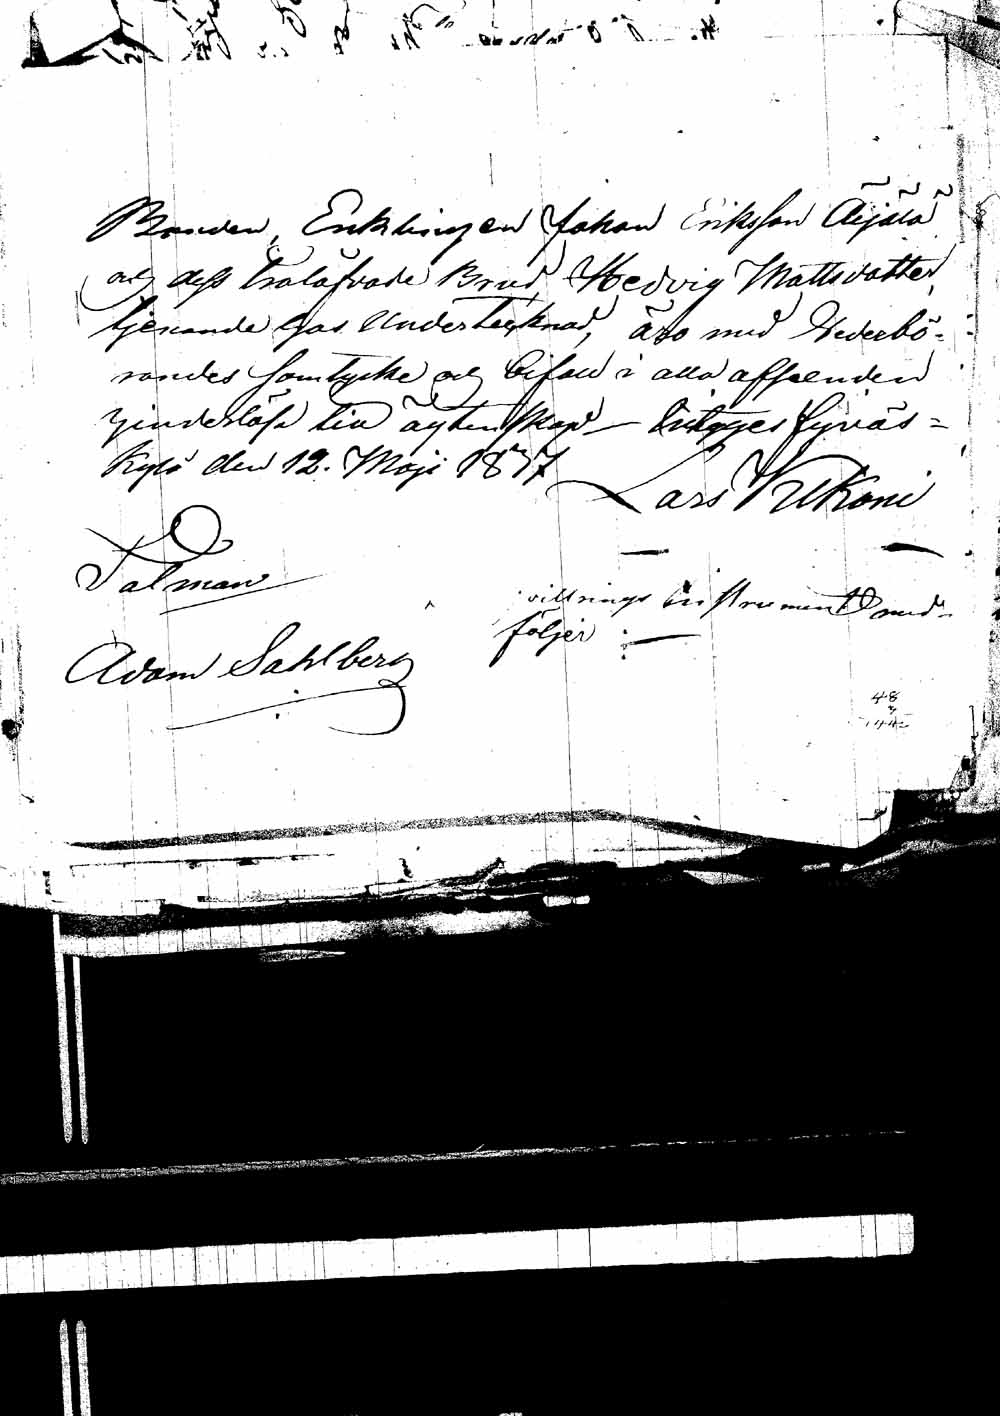 Bonden, Enklingen Johan Eriksson Äijälä
och dess trolofvade Brud Hedvig Mattsdotter,
tjenande hos Undertecknad, äro med Vederbö-
randes samtycke och bifall i alla afseenden
hinderlöse till ägtenskap – betyges Jyväs-
kylä den 12. Maji 1837
Lars Kukoni
Talman
villnings instrument med-
följer
Adam Sahlberg
48
3
144